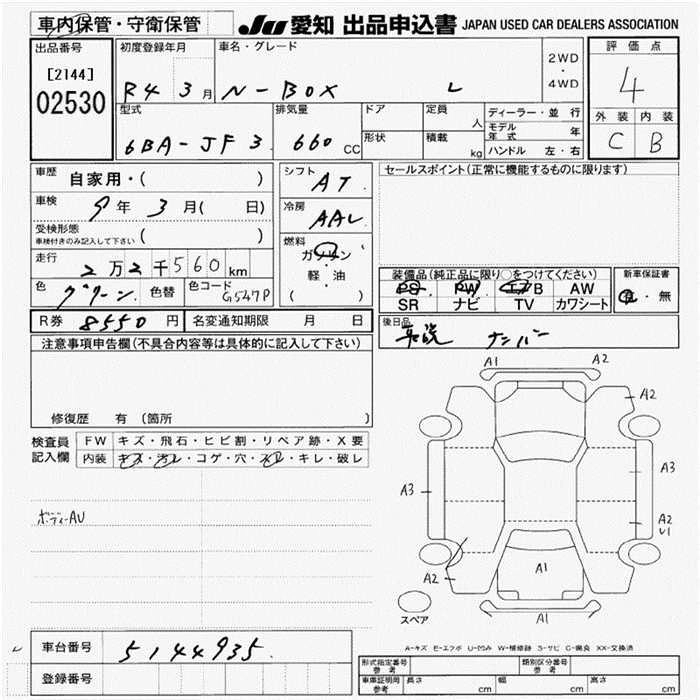 車内保管・守衛保管 JU 愛知 出品申込書 JAPAN USED CAR DEALERS ASSOCIATION
出品番号 初度登録年月 車名・グレード 2WD・4WD 評価点
[2144]
02530 R4 3月 N-BOX L 4
型式 排気量 ドア 定員 人 ディーラー・並行 外装 内装
6BA-JF3 660 CC 形状 積載 kg モデル年式 年 C B
ハンドル 左・右
車歴 自家用・( ) シフト AT セールスポイント(正常に機能するものに限ります)
車検 9年 3月( 日) 冷房 AAC
受検形態 ( )
車検付きのみ記入して下さい
燃料 ガソリン
走行 2万2千560km 軽・油 装備品(純正品に限り○をつけてください) 新車保証書
( ) PS PW エアB AW 有・無
色 グリーン 色替 色コード G547P SR ナビ TV カワシート
R券 8550円 名変通知期限 月 日 後日品
取説 ナンバー
注意事項申告欄(不具合内容等は具体的に記入して下さい)
修復歴 有 (箇所
検査員 FW キズ・飛石・ヒビ割・リペア跡・X要
記入欄 内装 キズ・汚レ・コゲ・穴・スレ・キレ・破レ
ボディーAU
A1 A2
A2
A3 A3
A2
U1
A1
A2
A1
スペア
A-キズ E-エクボ U-凹み W-補修跡 S-サビ C-腐食 XX-交換済
車台番号 5144935
登録番号
形式指定番号 参考 類別区分番号 参考
車庫証明用 参考 長さ cm 幅 cm 高さ cm